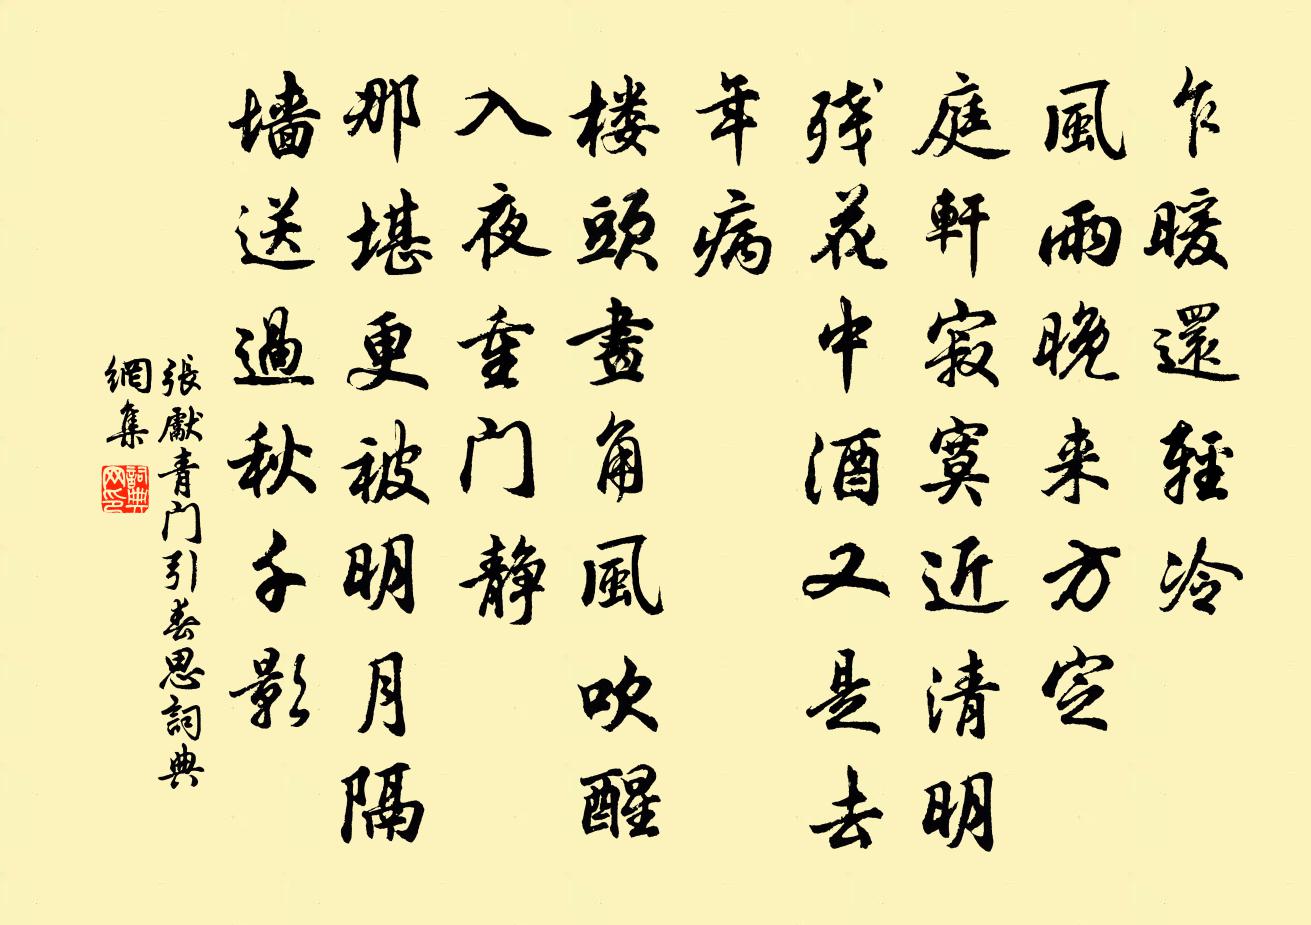 乍暖還輕冷
風雨晚来方定
庭軒寂寞近清明
残花中酒又是去
年病
楼頭畫角風吹醒
入夜重门静
那堪更被明月隔
墙送過秋千影
張獻青门引春思詞典
網集
詞典网印